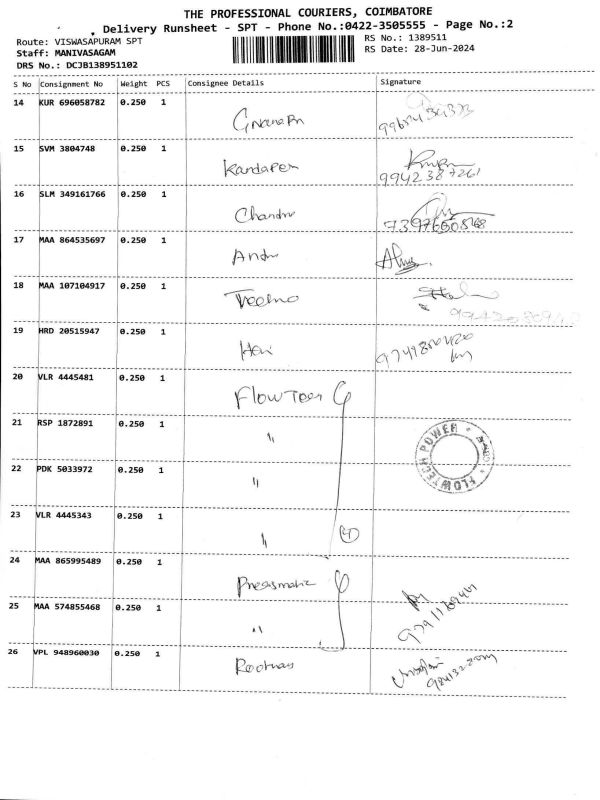 THE PROFESSIONAL COURIERS, COIMBATORE
Delivery Runsheet - SPT - Phone No.:0422-3505555 - Page No.:2
Route: VISWASAPURAM SPT
RS No.: 1389511
Staff: MANIVASAGAM
RS Date: 28-Jun-2024
DRS No.: DCJB138951102
S No Consignment No Weight PCS Consignee Details Signature
14 KUR 696058782 0.250 1
15 SVM 3804748 0.250 1 Kandapen
9942387261
16 SLM 349161766 0.250 1 Chandru
73976605868
17 MAA 864535697 0.250 1 Andu
18 MAA 107104917 0.250 1
19 HRD 20515947 0.250 1 Hari
20 VLR 4445481 0.250 1 Flowtech
21 RSP 1872891 0.250 1 "
FLOWTECH POWER
22 PDK 5033972 0.250 1 "
23 VLR 4445343 0.250 1 " 4
24 MAA 865995489 0.250 1 Preesmatic
25 MAA 574855468 0.250 1 "
26 VPL 948960030 0.250 1 Rootways